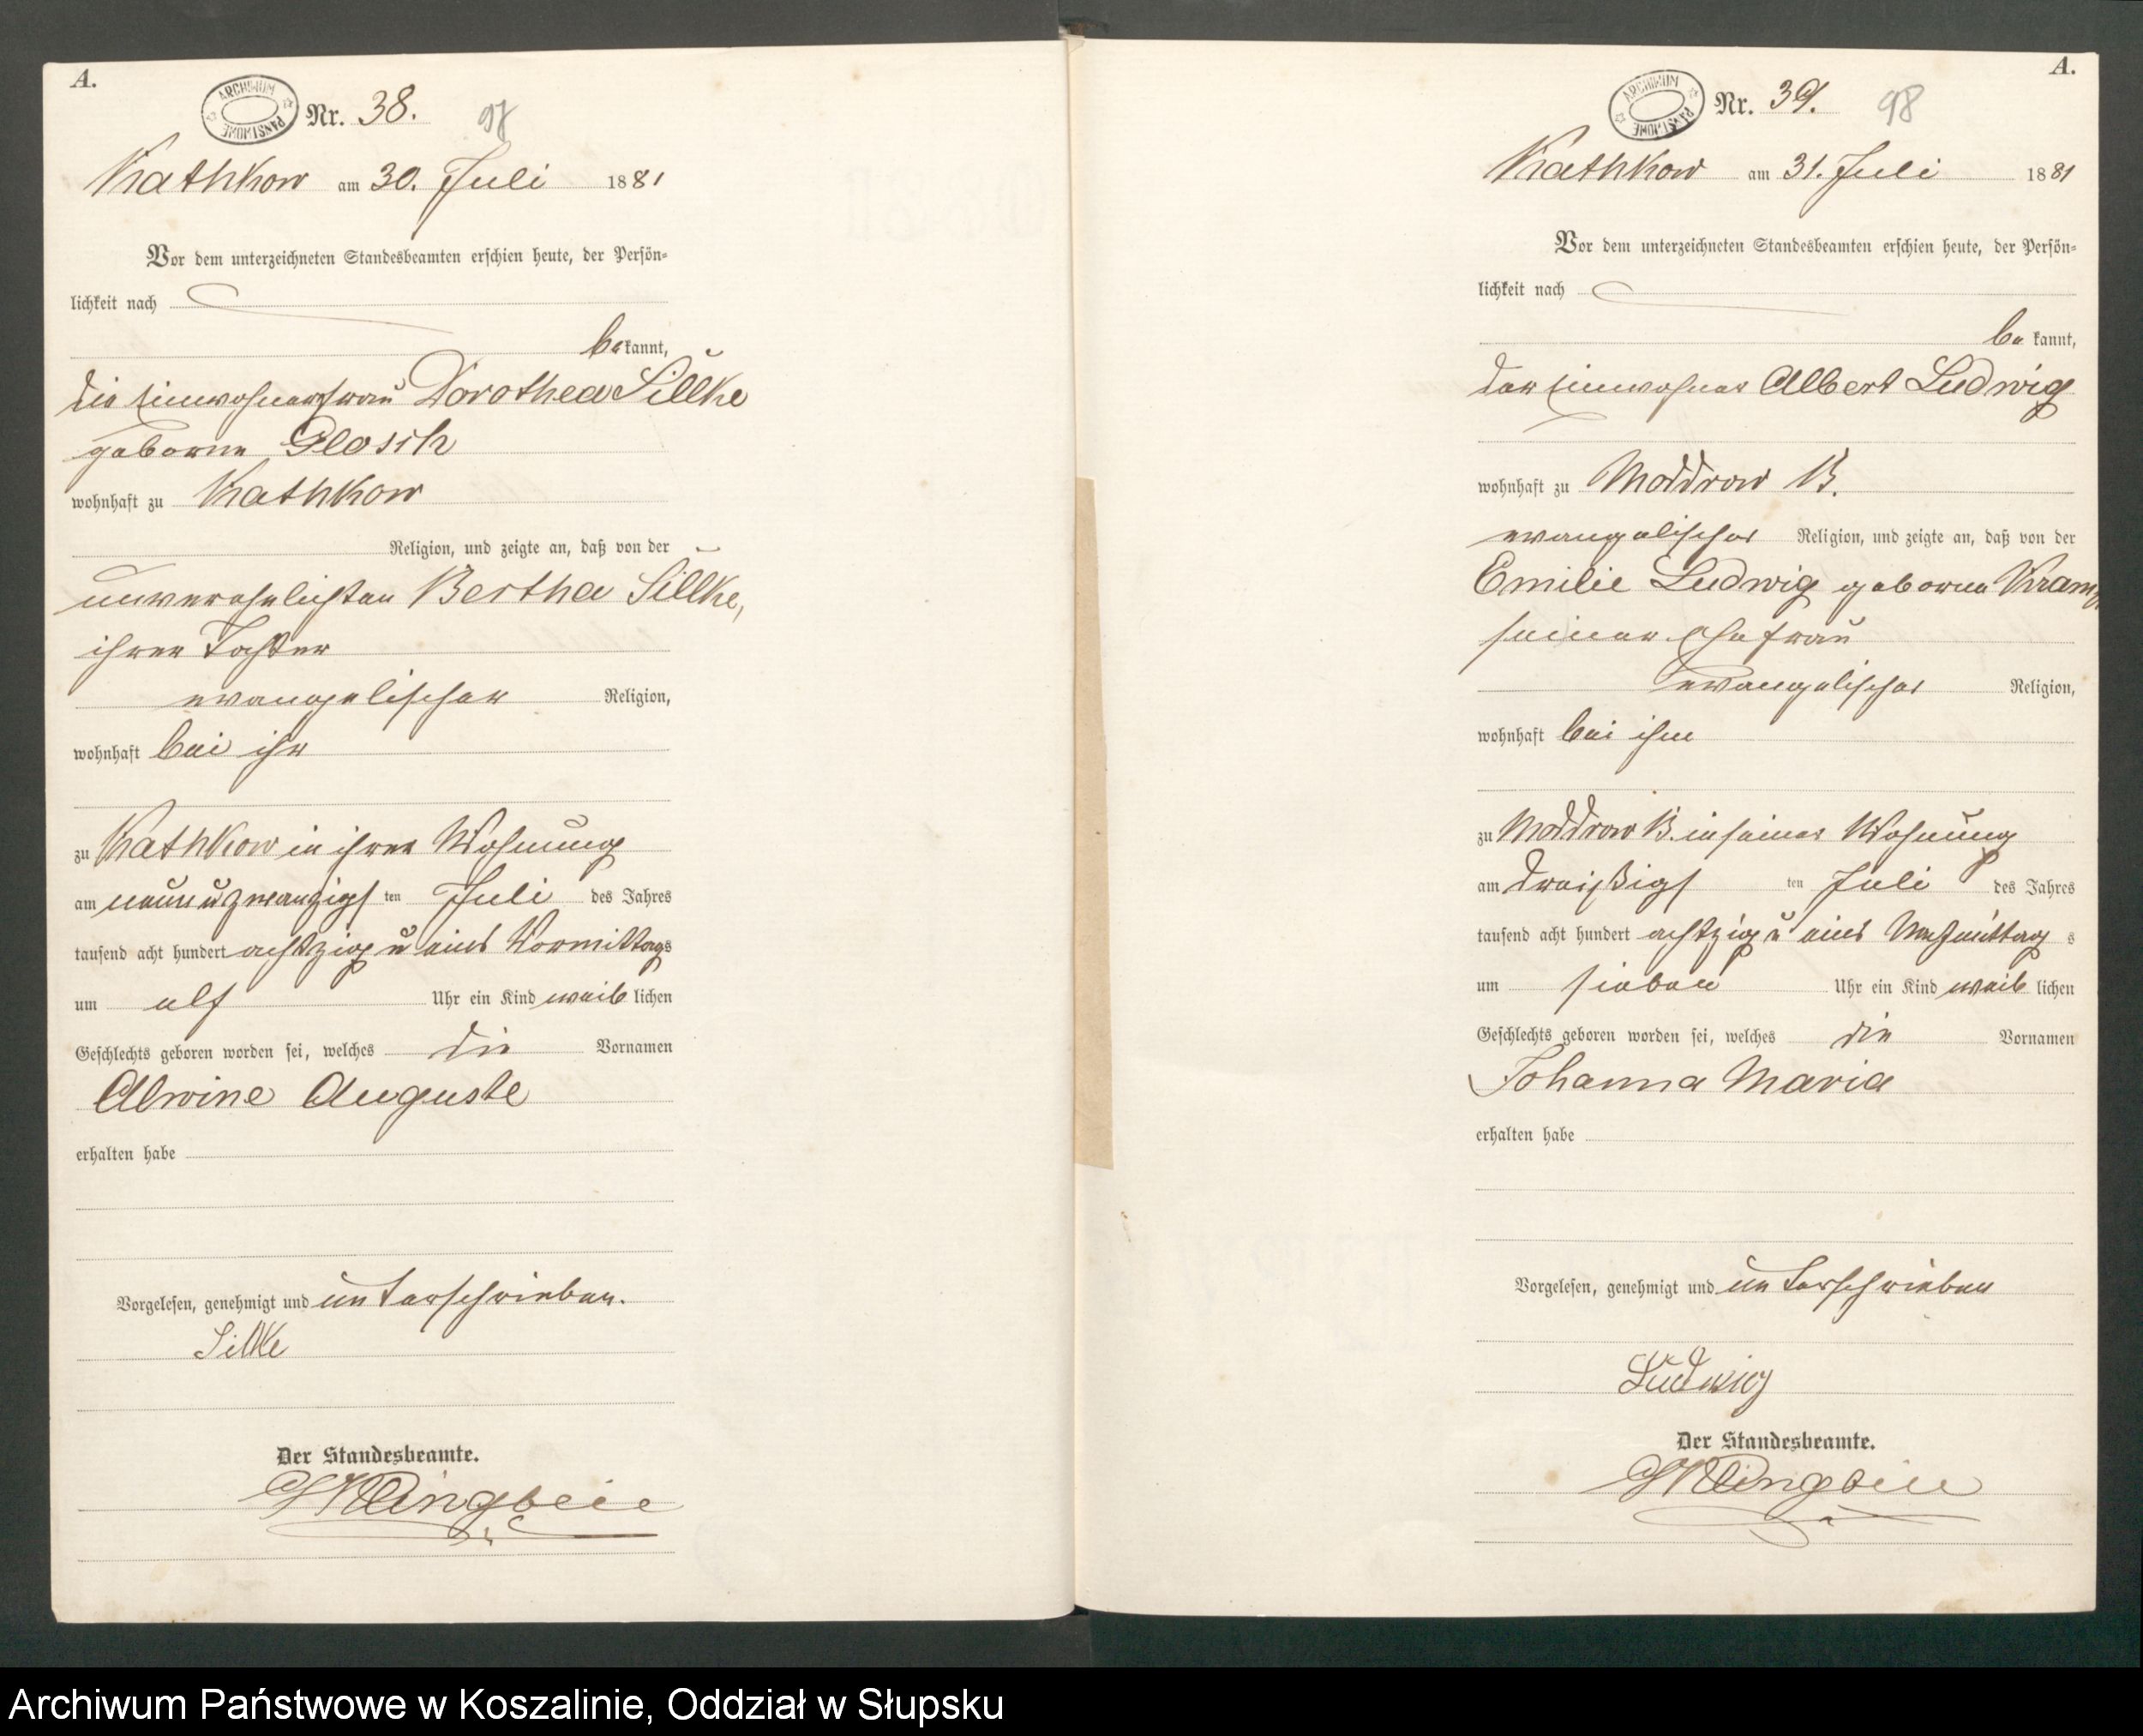 A.
ARCHIWUM PAŃSTWOWE
Nr. 38. 97
Kathkow am 30. Juli 1881
Vor dem unterzeichneten Standesbeamten erschien heute, der Persön-
lichkeit nach
bekannt,
die Einwohnerfrau Dorothea Sillke
geborne Glosch
wohnhaft zu Kathkow
Religion, und zeigte an, daß von der
unverehelichten Bertha Sillke,
ihrer Tochter
evangelischer Religion,
wohnhaft bei ihr
zu Kathkow in ihrer Wohnung
am neunu zwanzigsten Juli des Jahres
tausend acht hundert achtzig u eins Vormittags
um elf Uhr ein Kind weiblichen
Geschlechts geboren worden sei, welches die Vornamen
Alwine Auguste
erhalten habe
Vorgelesen, genehmigt und unterschrieben.
Silke
Der Standesbeamte.
Klingbeil
A.
ARCHIWUM PAŃSTWOWE
Nr. 39. 98
Kathkow am 31. Juli 1881
Vor dem unterzeichneten Standesbeamten erschien heute, der Persön-
lichkeit nach
bekannt,
der Einwohner Albert Ludwig
wohnhaft zu Moddrow B.
evangelischer Religion, und zeigte an, daß von der
Emilie Ludwig geborne
seiner Ehefrau
evangelischer Religion,
wohnhaft bei ihm
zu Moddrow B. in seiner Wohnung
am dreißigsten Juli des Jahres
tausend acht hundert achtzig u eins Nachmittags
um sieben Uhr ein Kind weiblichen
Geschlechts geboren worden sei, welches die Vornamen
Johanna Maria
erhalten habe
Vorgelesen, genehmigt und unterschrieben
Ludwig
Der Standesbeamte.
Klingbeil
Archiwum Państwowe w Koszalinie, Oddział w Słupsku